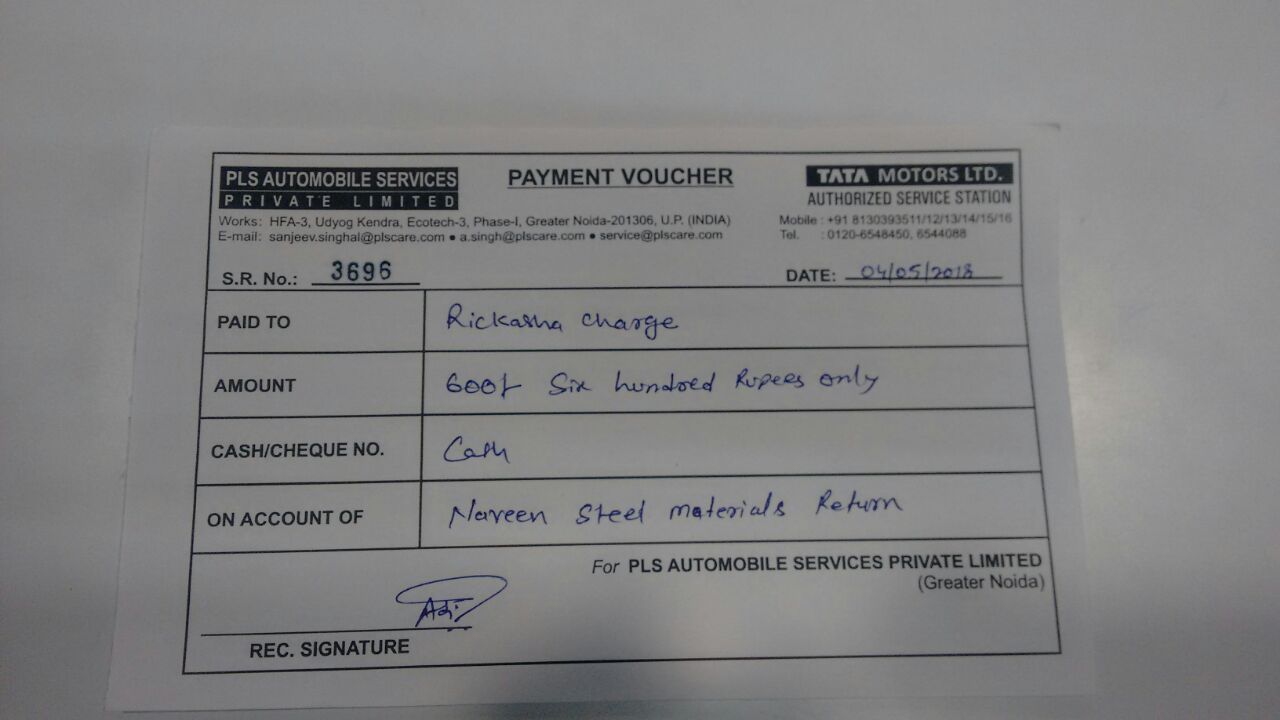 PLS AUTOMOBILE SERVICES
PRIVATE LIMITED
PAYMENT VOUCHER
TATA MOTORS LTD.
AUTHORIZED SERVICE STATION
Works: HFA-3, Udyog Kendra, Ecotech-3, Phase-I, Greater Noida-201306, U.P. (INDIA)
Mobile : +91 8130393511/12/13/14/15/16
E-mail: sanjeev.singhal@plscare.com ● a.singh@plscare.com ● service@plscare.com
Tel. : 0120-6548450, 6544088
S.R. No.: 3696
DATE: 04/05/2018
PAID TO Rickasha charge
AMOUNT 600/- Six hundred Rupees only
CASH/CHEQUE NO. Cash
ON ACCOUNT OF Naveen Steel materials Return
For PLS AUTOMOBILE SERVICES PRIVATE LIMITED
(Greater Noida)
REC. SIGNATURE